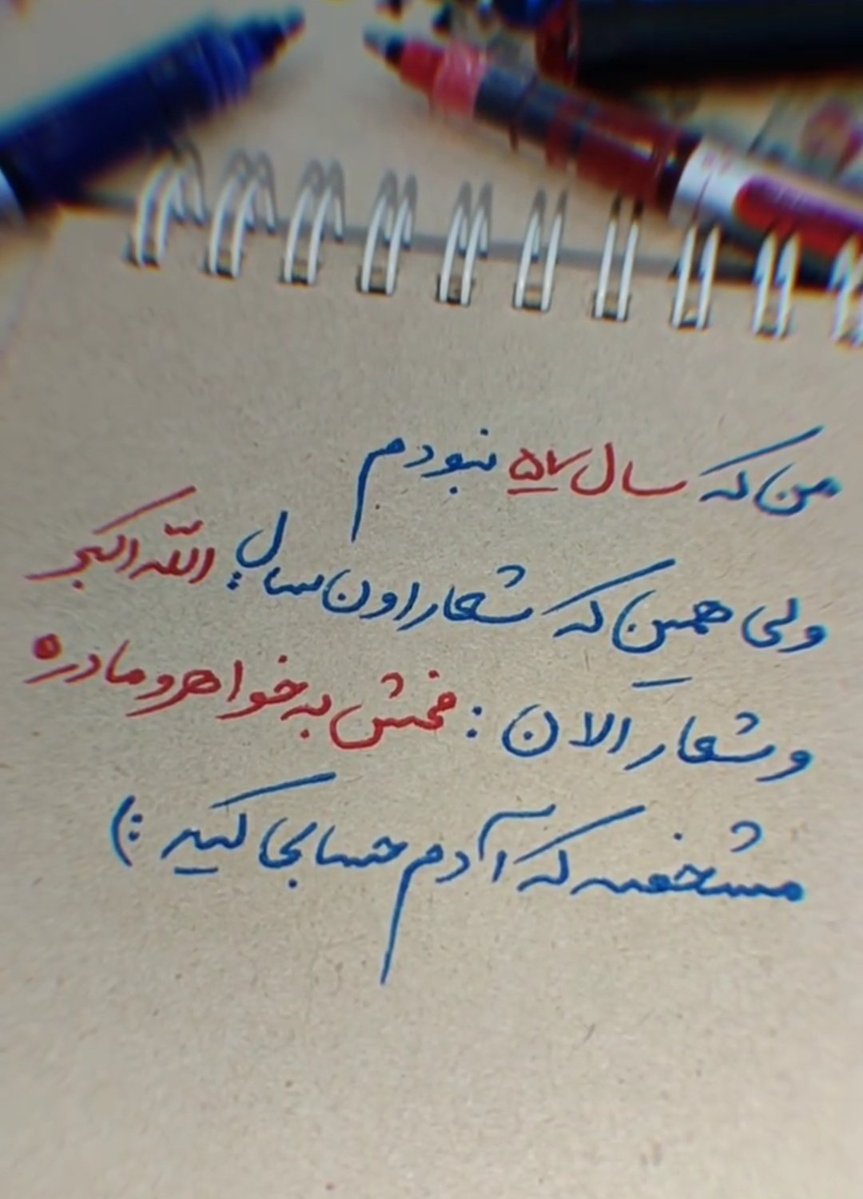 من که سال ۵۷ نبودم
ولی همین که شعار اون سال: الله اکبر
و شعار الان: فحش به خواهر و مادره
مشخصه که آدم حسابیا کین :)